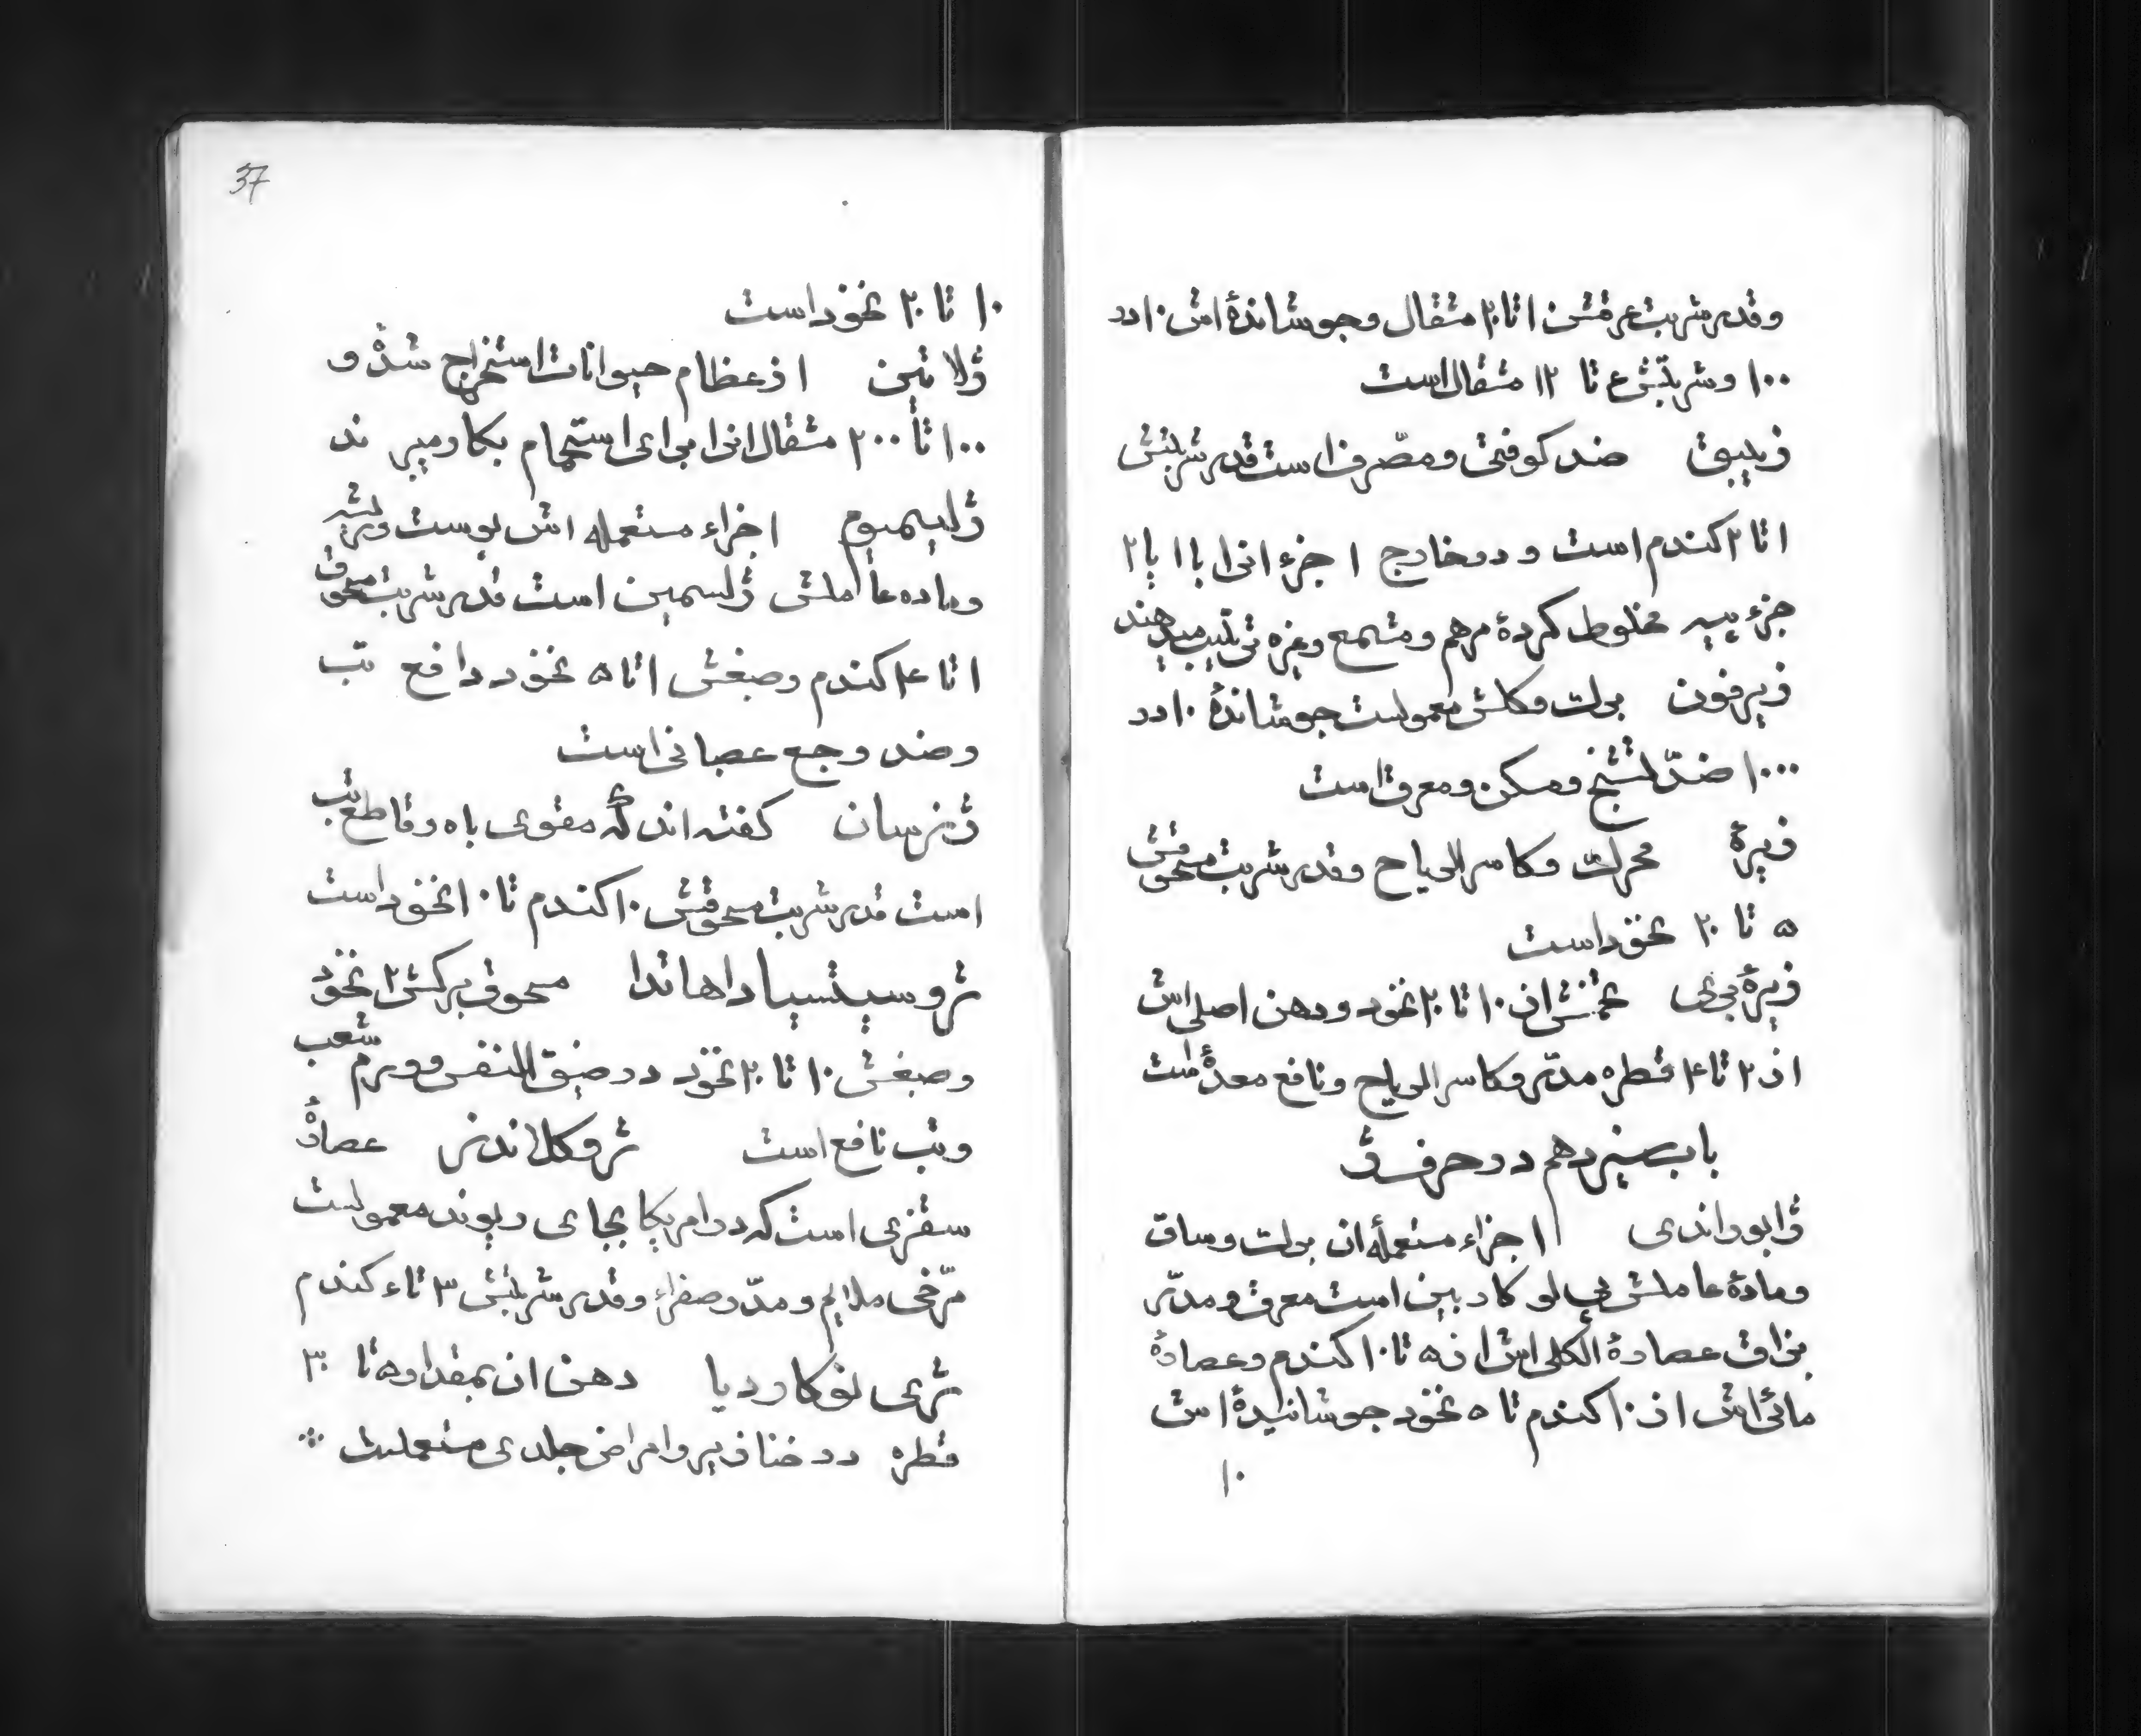 وقدر شربت عرقش ۱ تا ۲۰ مثقال و جوشاندهٔ اش ۱۰ در
۱۰۰ و شربتش ع تا ۱۲ مثقال است
زیبق ضد کوفتی و مصرف است قدر شربتش
۱ تا ۲ کندم است و در خارج ۱ جزء انرا با ۱ یا ۲
جزء پیه مخلوط کردهٔ مرهم و مشمع وغیره ترتیب میدهند
زیرفون برک و کلش معمولست جوشاندهٔ ۱۰ در
۱۰۰۰ ضدّ تشنج و مسکن و معرق است
زیرهٔ محرک و کاسر الریاح وقدر شربت مسحوقش
۵ تا ۲۰ نخود است
زیرهٔ بری تخمش از ۱۰ تا ۲۰ نخود و دهن اصلی اش
از ۲ تا ۴ قطره مدّر و کاسر الریاح و نافع معدهٔ است
باب سیزدهم در حرف ژ
ژابوراندی اجزاء مستعملهٔ ان برک و ساق
و مادهٔ عاملش پی لو کارپین است معرق و مدّر
بزاق عصارهٔ الکلی اش از ۵ تا ۱۰ کندم و عصارهٔ
مائی اش از ۱۰ کندم تا ۵ نخود جوشانیدهٔ اش
۱۰
37
۱۰ تا ۲۰ نخود است
ژلاتین از عظام حیوانات استخراج شدهٔ و
۱۰۰ تا ۲۰۰ مثقال انرا برای استحمام بکار میبرند
ژلسمیوم اجزاء مستعمله اش پوست و ریشه
و ماده عاملش ژلسمین است قدر شربت مسحوق
۱ تا ۴ کندم و صبغش ۱ تا ۵ نخود دافع تب
و ضد وجع عصبانی است
ژنرسان کفته اند که مقوی باه و قاطع تب
است قدر شربت مسحوقش ۱۰ کندم تا ۱۰ نخود است
ژوسیتسیاداهاتدا مسحوق برکش ۲ نخود
و صبغش ۱۰ تا ۲۰ نخود در ضیق النفس و ورم شعب
و تب نافع است ژوکلاندنر عصارهٔ
سقزی است که در امریکا بجای ریوند معمولست
مرّخی ملایم و مدّر صفراء وقدر شربتش ۳ تا ع کندم
ژی نوکاردیا دهن ان بمقدار ۵ تا ۳۰
قطره در خنازیر و امراض جلدی مستعملست